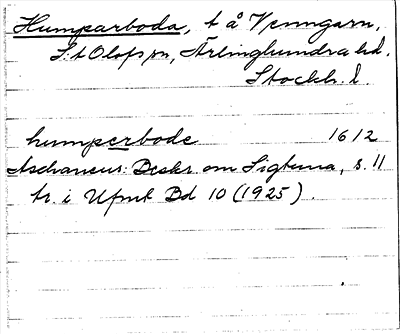 Humparboda, t å Venngarn,
S:t Olofs sn, Ärlinghundra hd.
Stockh. l
humperbode 1612
Aschaneus: Beskr om Sigtuna, s. 11
tr. i Ufmt Bd 10 (1925).